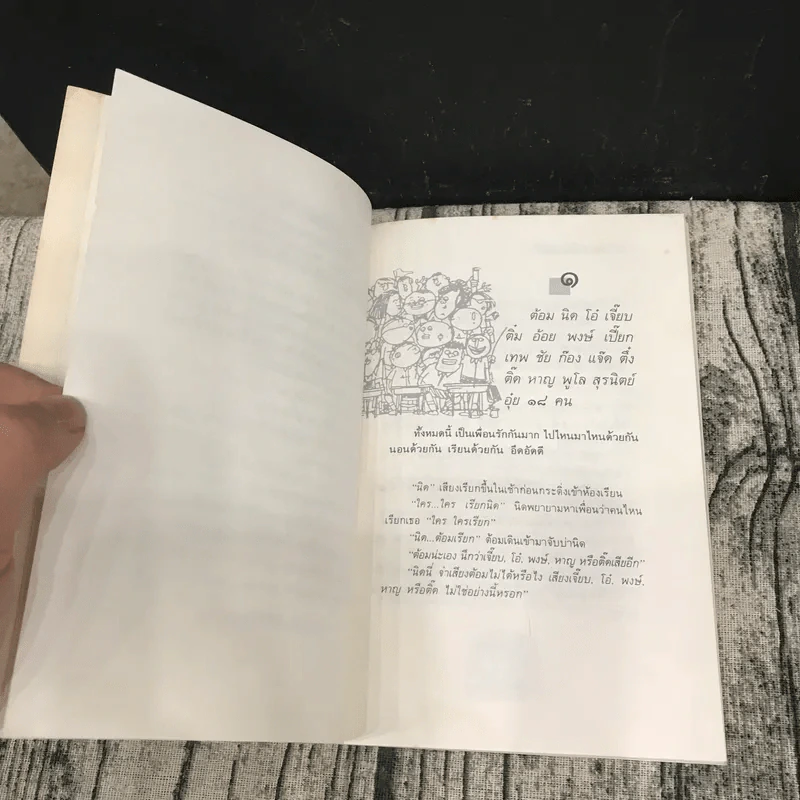 ๑
ต้อม นิด โอ๋ เจี๊ยบ
ติ๋ม อ้อย พงษ์ เปี๊ยก
เทพ ชัย ก๊อง แจ๊ด ตึ๋ง
ติ๊ด หาญ พูโล สุรนิตย์
อุ๋ย ๑๘ คน
ทั้งหมดนี้ เป็นเพื่อนรักกันมาก ไปไหนมาไหนด้วยกัน
นอนด้วยกัน เรียนด้วยกัน อึดอัดดี
“นิด” เสียงเรียกขึ้นในเช้าก่อนกระดิ่งเข้าห้องเรียน
“ใคร...ใคร เรียกนิด” นิดพยายามหาเพื่อนว่าคนไหน
เรียกเธอ “ใคร ใครเรียก”
“นิด...ต้อมเรียก” ต้อมเดินเข้ามาจับบ่านิด
“ต้อมน่ะเอง นึกว่าเจี๊ยบ, โอ๋, พงษ์, หาญ หรือติ๊ดเสียอีก”
“นิดนี่ จำเสียงต้อมไม่ได้หรือไง เสียงเจี๊ยบ, โอ๋, พงษ์,
หาญ หรือติ๊ด ไม่ใช่อย่างนี้หรอก”